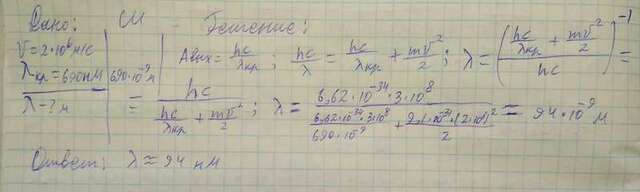 Дано: СИ - Решение:
V=2·10⁶м/с
λкр=690нм 690·10⁻⁹м
λ-? м
Aвых=hc/λкр; hc/λ = hc/λкр + mv²/2; λ=((hc/λкр + mv²/2)/hc)⁻¹=
= hc/(hc/λкр + mv²/2); λ= 6,62·10⁻³⁴·3·10⁸/(6,62·10⁻³⁴·3·10⁸/690·10⁻⁹ + 9,1·10⁻³¹·(2·10⁶)²/2) = 94·10⁻⁹ м
Ответ: λ≈94 нм